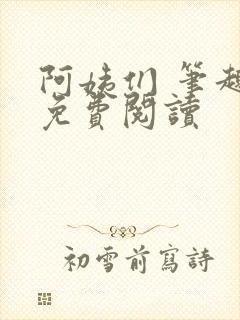 阿姨们 筆趣
免費閱讀
初雪前寫詩